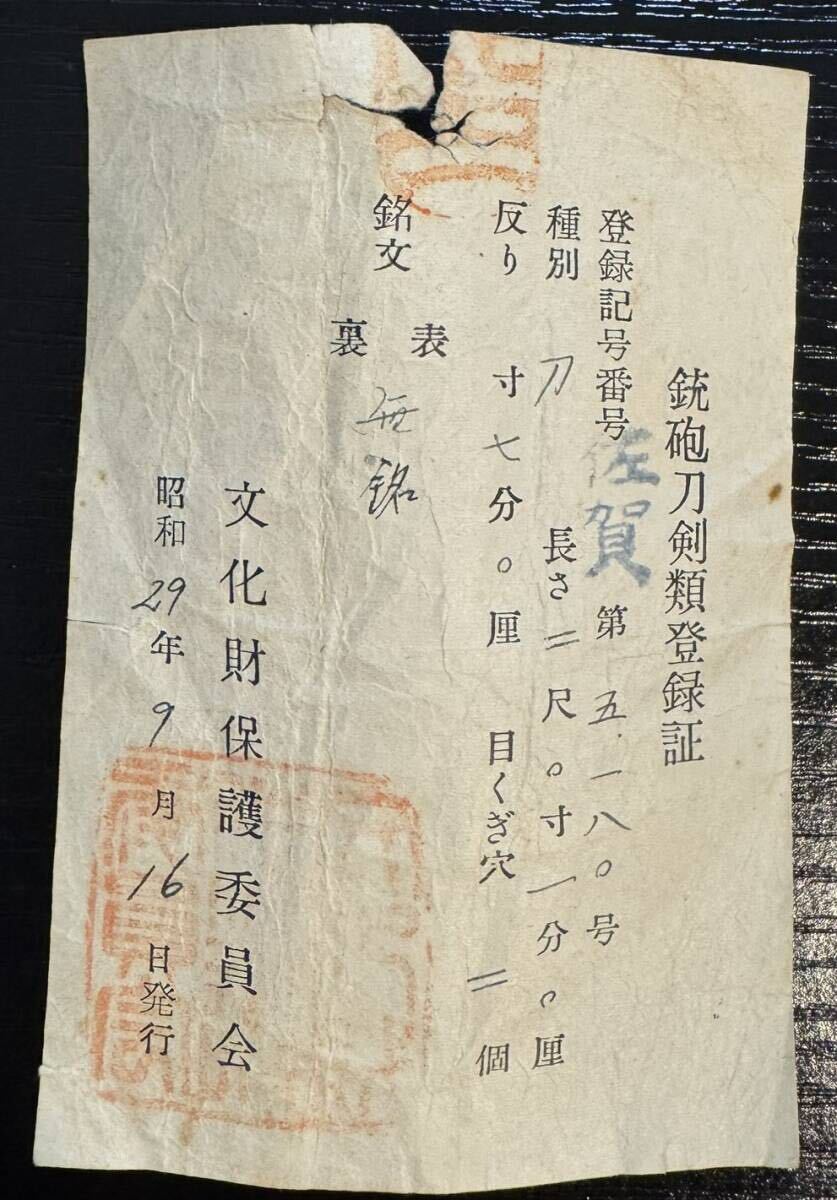 銃砲刀剣類登録証
登録記号番号 佐賀 第五.一八〇号
種別 刀 長さ 二尺〇寸一分〇厘
反り 寸七分〇厘 目くぎ穴 二個
銘文 表
裏 無銘
文化財保護委員会
昭和29年9月16日発行